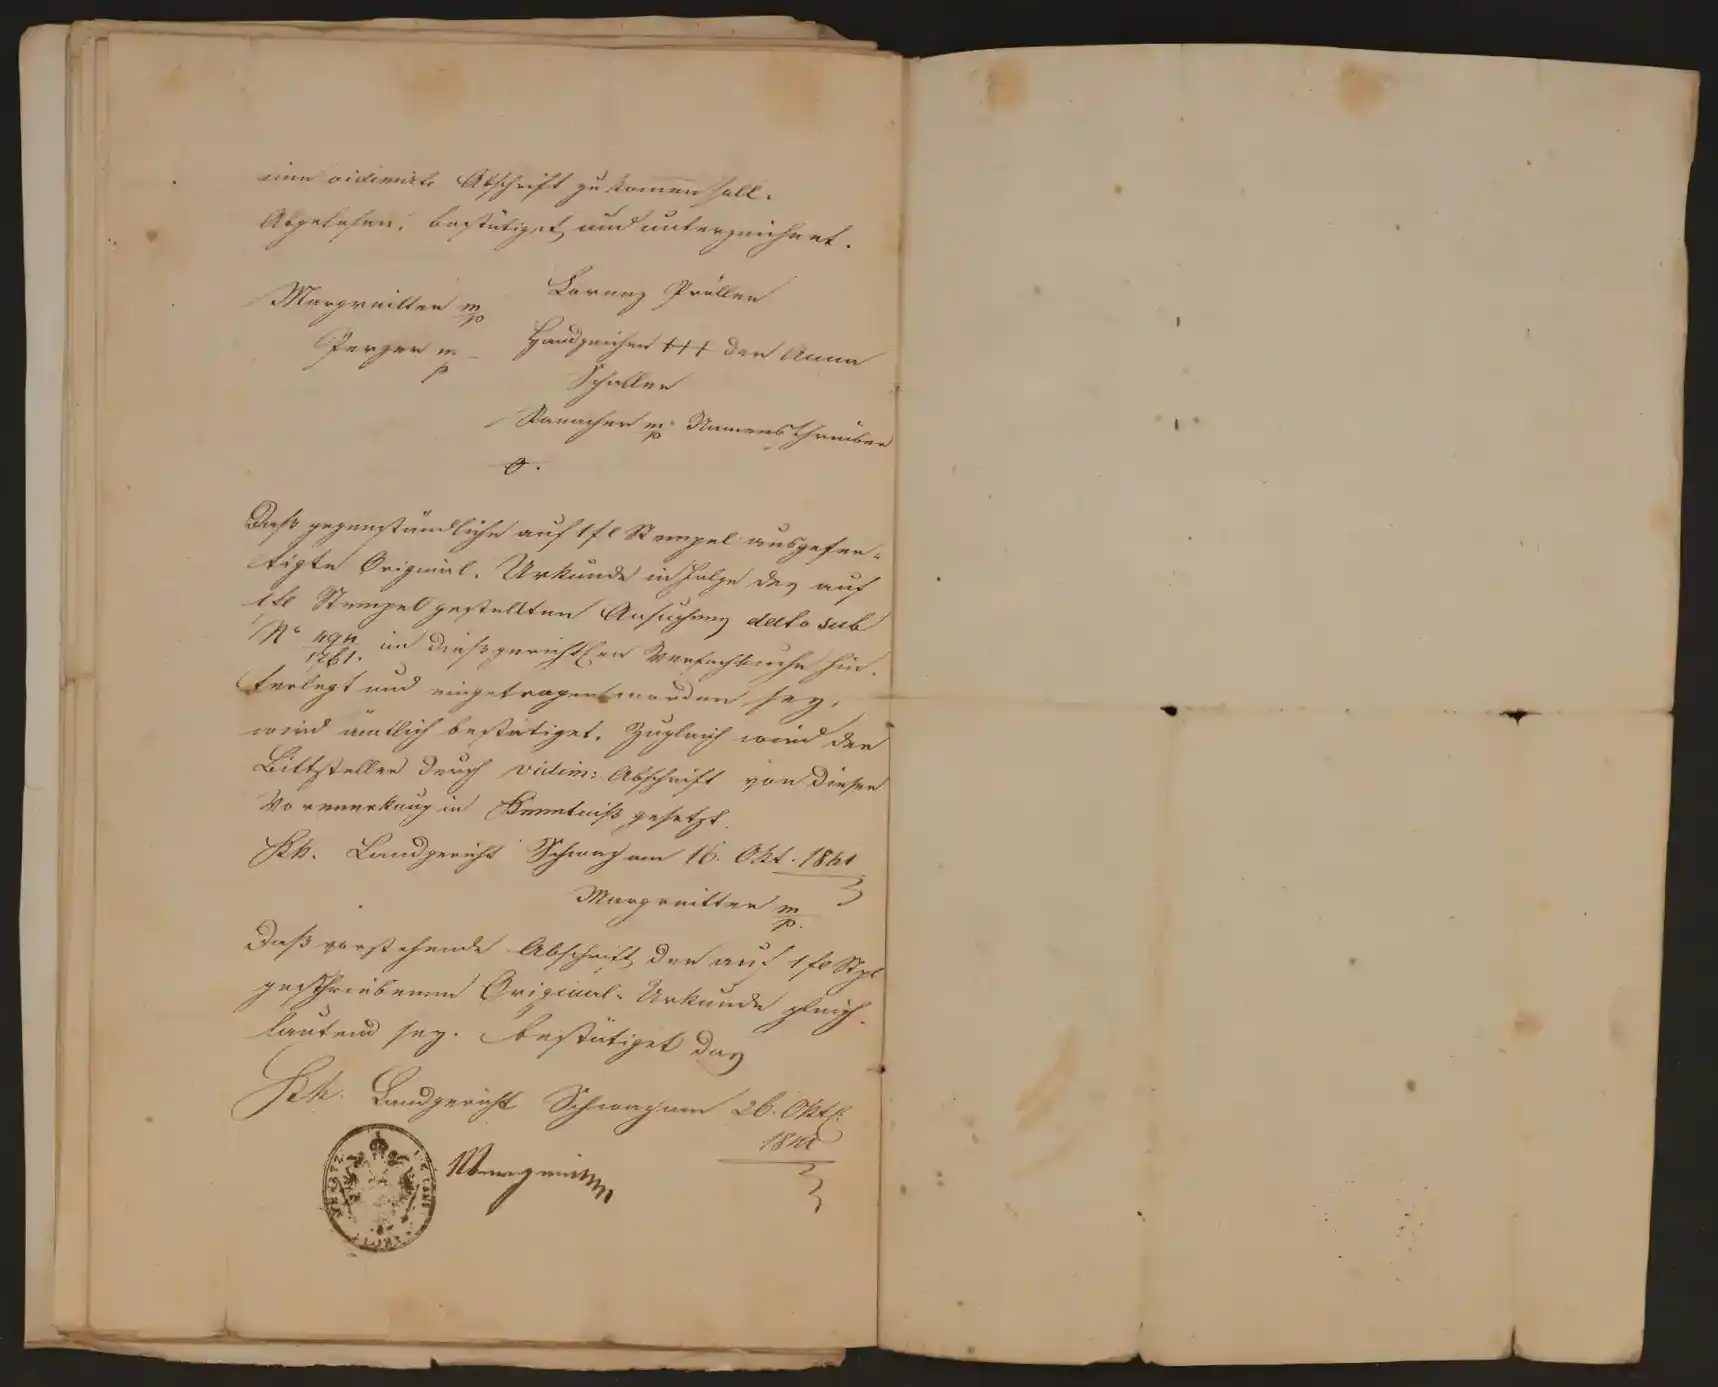 eine vidimirte Abschrift zukommen soll.
Abgelesen, bestätiget und unterzeichnet.
Margreitter m/p
Lorenz Präller
Perger m/p
Handzeichen +++ der Anna
Schaller
m/p Namensschreiber
Daß gegenständliche auf 1 fl Stempel ausgefer-
tigte Original-Urkunde in Folge des auf
Stempel gestellten Ansuchens dato sub
No in dießgerichtlichen Verfachbuche hin-
terlegt und eingetragen worden sey,
wird ämtlich bestätiget. Zugleich wird der
Bittsteller durch vidim: Abschrift von dieser
Vormerkung in Kenntniß gesetzt.
Kk. Landgericht Schwaz am 16. Okt. 1841
Margreitter m/p.
Daß vorstehende Abschrift der auf 1 fl Stpl
geschriebenen Original-Urkunde gleich-
lautend sey, bestätiget das
Kk. Landgericht Schwaz am 26. Oktb:
1841
Margreitter